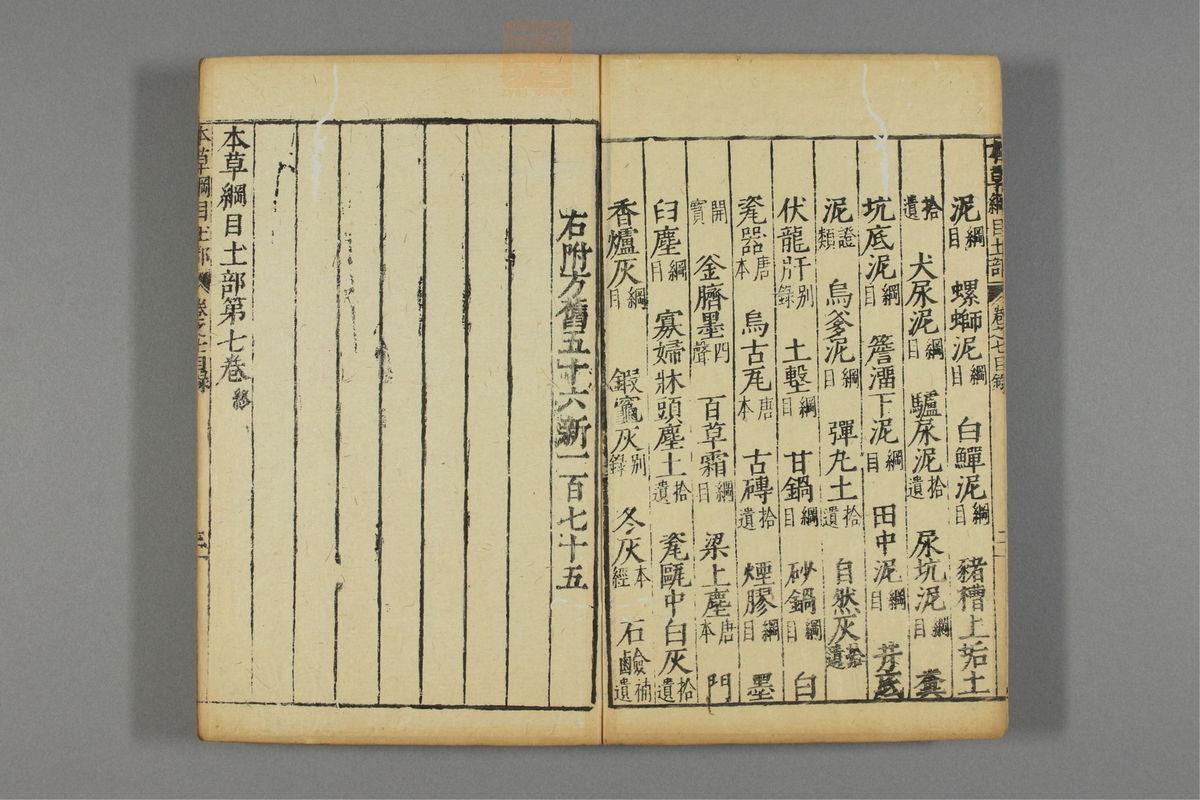 本草綱目土部 卷之七目錄 二
泥綱目 螺螄泥綱目 白鱓泥綱目 豬槽上垢土
拾遺 犬尿泥綱目 驢尿泥拾遺 尿坑泥綱目 糞
坑底泥綱目 簷溜下泥綱目 田中泥綱目
泥證類 烏爹泥綱目 彈丸土拾遺 自然灰拾遺
伏龍肝別錄 土墼綱目 甘鍋綱目 砂鍋綱目 白
瓷器唐本 烏古瓦唐本 古磚拾遺 煙膠綱目 墨
開寶 釜臍墨四聲 百草霜綱目 梁上塵唐本 門
臼塵綱目 寡婦牀頭塵土拾遺 瓷甌中白灰拾遺
香爐灰綱目 鍛竈灰別錄 冬灰本經 石鹼補遺
右附方舊五十六新一百七十五
本草綱目土部第七卷終
本草綱目土部 卷之七目錄 三